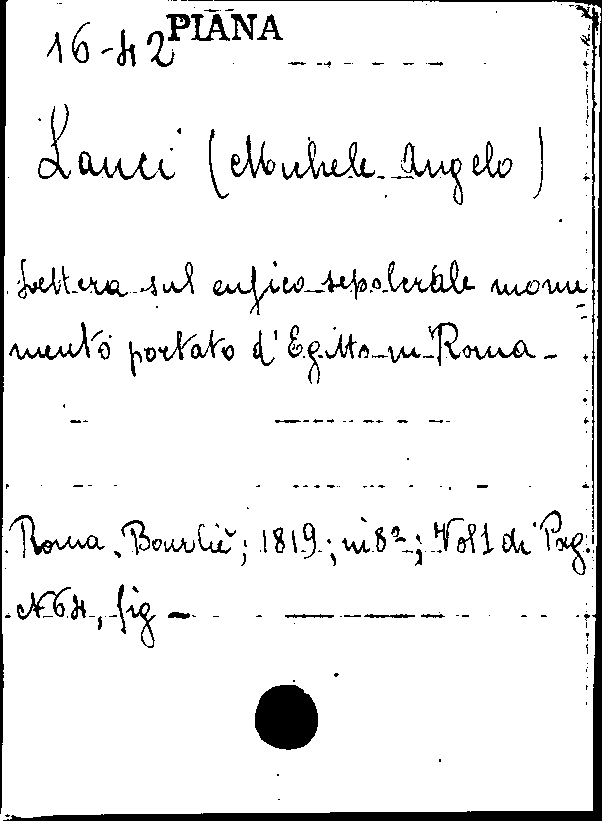 PIANA
16-42
Lanci (Michele Angelo)
Lettera sul cufico sepolcrale monu=
mento portato d'Egitto in Roma -
Roma, Bourliè; 1819; in 8º; Vol 1 di Pag.
N 64, fig -